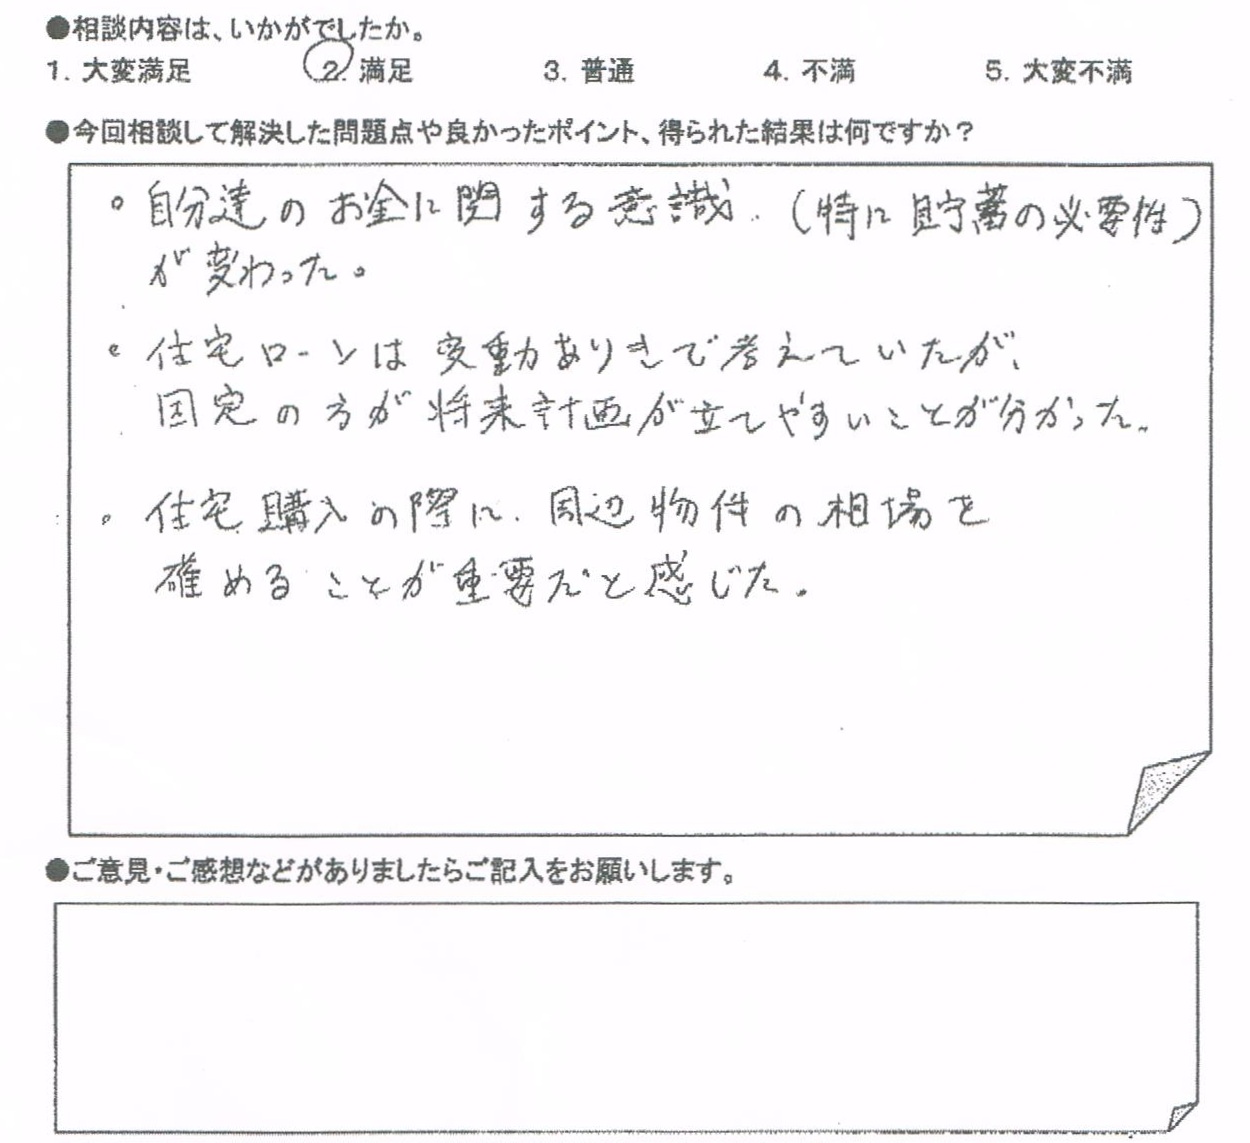 ●相談内容は、いかがでしたか。
1. 大変満足 2. 満足 3. 普通 4. 不満 5. 大変不満
●今回相談して解決した問題点や良かったポイント、得られた結果は何ですか？
○ 自分達のお金に関する意識 (特に貯蓄の必要性)
が変わった。
○ 住宅ローンは変動ありきで考えていたが、
固定の方が将来計画が立てやすいことが分かった。
○ 住宅購入の際に、周辺物件の相場を
確めることが重要だと感じた。
●ご意見・ご感想などがありましたらご記入をお願いします。